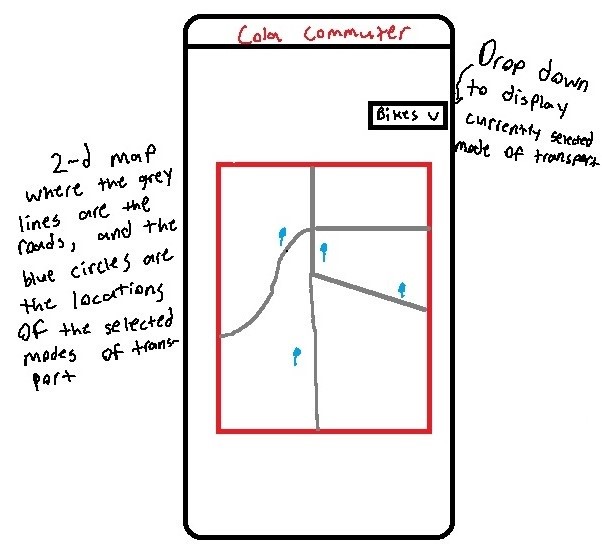 Cola Commuter
Bikes v
Drop down
to display
currently selected
mode of transport
2-d map
where the grey
lines are the
roads, and the
blue circles are
the locations
of the selected
modes of trans-
port